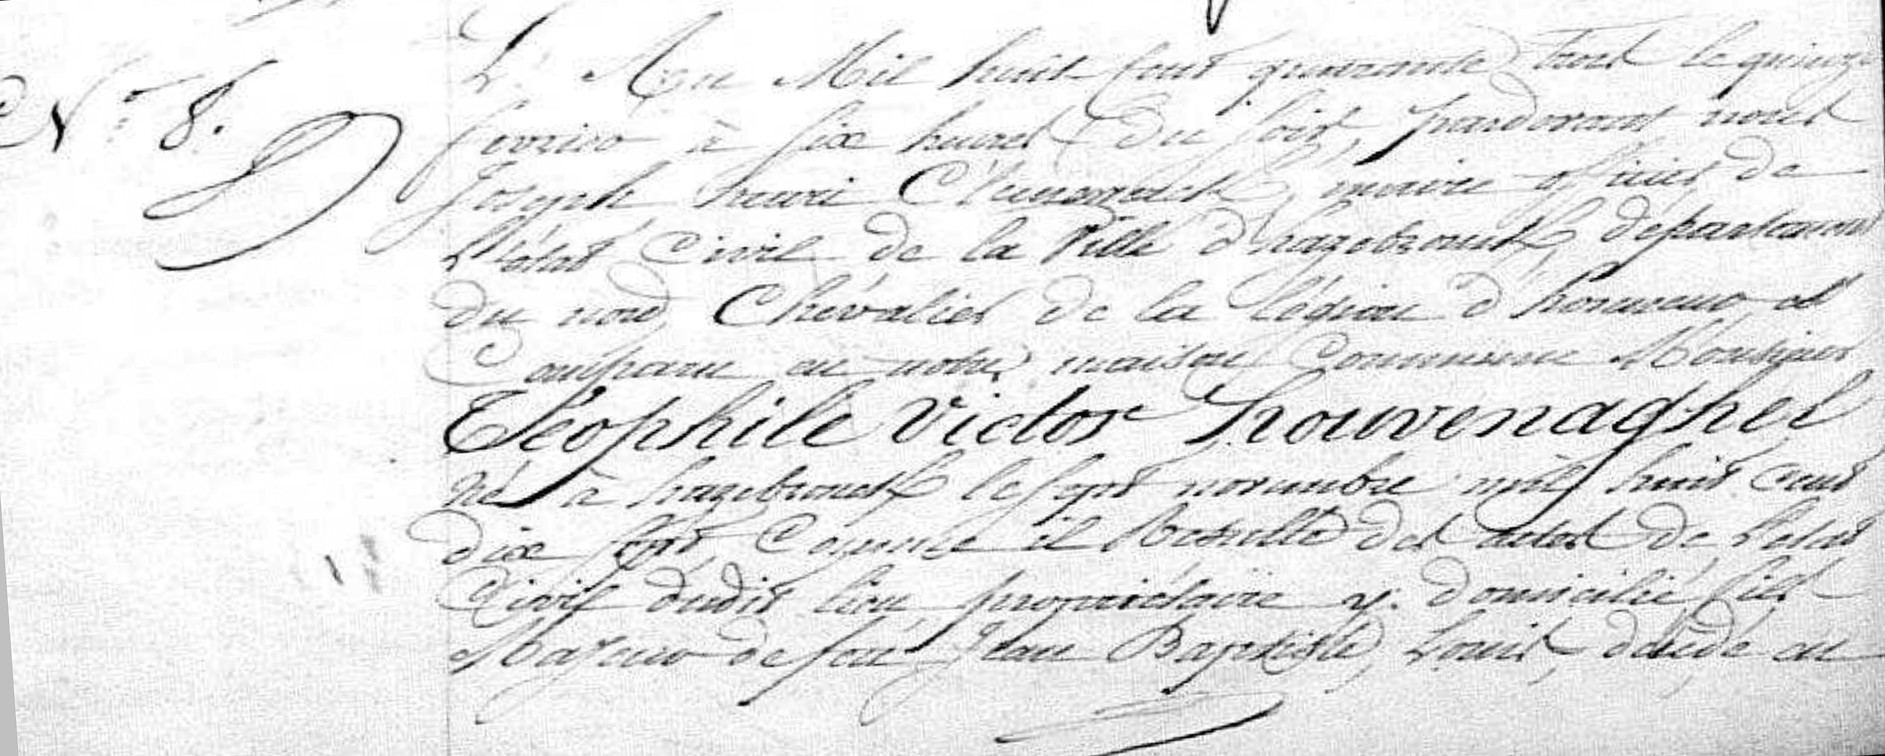 N° 8.
L'An Mil huit Cent quarante trois le quinze
fevrier à six heures du soir, pardevant nous
Joseph henri maire officier de
L'état Civil de la Ville d'hazebrouck, département
du nord, Chevalier de la légion d'honneur, est
Comparu en notre maison Commune Monsieur
Téophile Victor houvenaghel
né à hazebrouck le sept novembre mil huit cent
dix sept, Comme il Resulte des actes de l'etat
Civil dudit lieu propriétaire y domicilié fils
Majeur de feu Jean Baptiste, Louis, décédé en